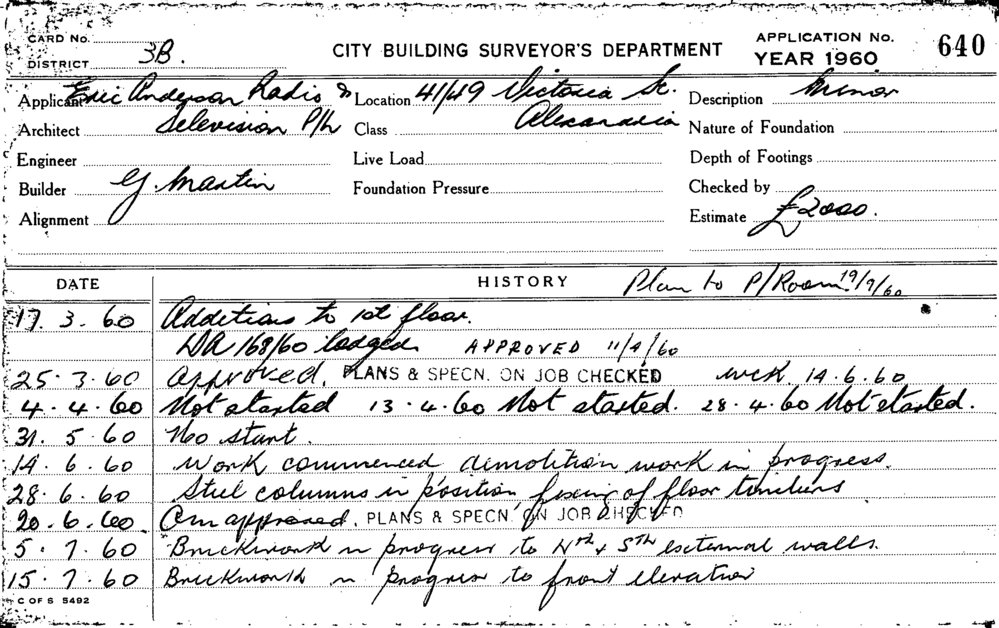 CARD No.
CITY BUILDING SURVEYOR'S DEPARTMENT
APPLICATION No. 640
DISTRICT 3B.
YEAR 1960
Applicant Eric Anderson Radio & Location 41/49 Victoria St. Description Minor
Architect Television P/L Class Alexandria Nature of Foundation
Engineer Live Load Depth of Footings
Builder G. Martin Foundation Pressure Checked by
Alignment Estimate £2000.
DATE HISTORY Plan to P/Room 19/7/60
17. 3. 60 Additions to 1st floor.
DA 168/60 lodged APPROVED 11/4/60
25. 3. 60 Approved. PLANS & SPECN. ON JOB CHECKED 14.6.60
4. 4. 60 Not started 13.4.60 Not started. 28.4.60 Not started.
31. 5. 60 No start.
14. 6. 60 Work commenced demolition work in progress.
28. 6. 60 Steel columns in position fixing of floor timbers
20. 6. 60. Am approved. PLANS & SPECN. ON JOB CHECKED
5. 7. 60 Brickwork in progress to Nth & Sth external walls.
15. 7. 60 Brickwork in progress to front elevation
C OF S 5492